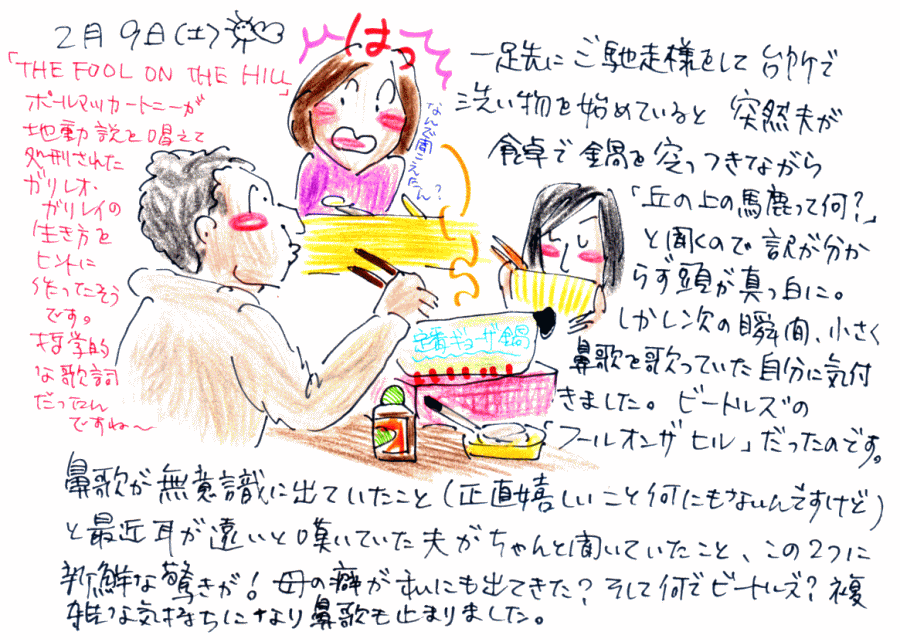 2月9日(土)
「THE FOOL ON THE HILL」
ポールマッカートニーが
地動説を唱えて
処刑された
ガリレオ・
ガリレイの
生き方を
ヒントに
作ったそう
です。
哲学的
な歌詞
だったん
ですね〜
はっ
なんで聞こえたん?
定番ギョーザ鍋
一足先にご馳走様をして台所で
洗い物を始めていると 突然夫が
食卓で鍋を突っつきながら
「丘の上の馬鹿って何?」
と聞くので訳が分か
らず頭が真っ白に。
しかし次の瞬間、小さく
鼻歌を歌っていた自分に気付
きました。ビートルズの
「フールオンザヒル」だったのです。
鼻歌が無意識に出ていたこと(正直嬉しいこと何にもないんですけど)
と最近耳が遠いと嘆いていた夫がちゃんと聞いていたこと、この2つに
新鮮な驚きが!母の癖が私にも出てきた?そして何でビートルズ?複
雑な気持ちになり鼻歌も止まりました。